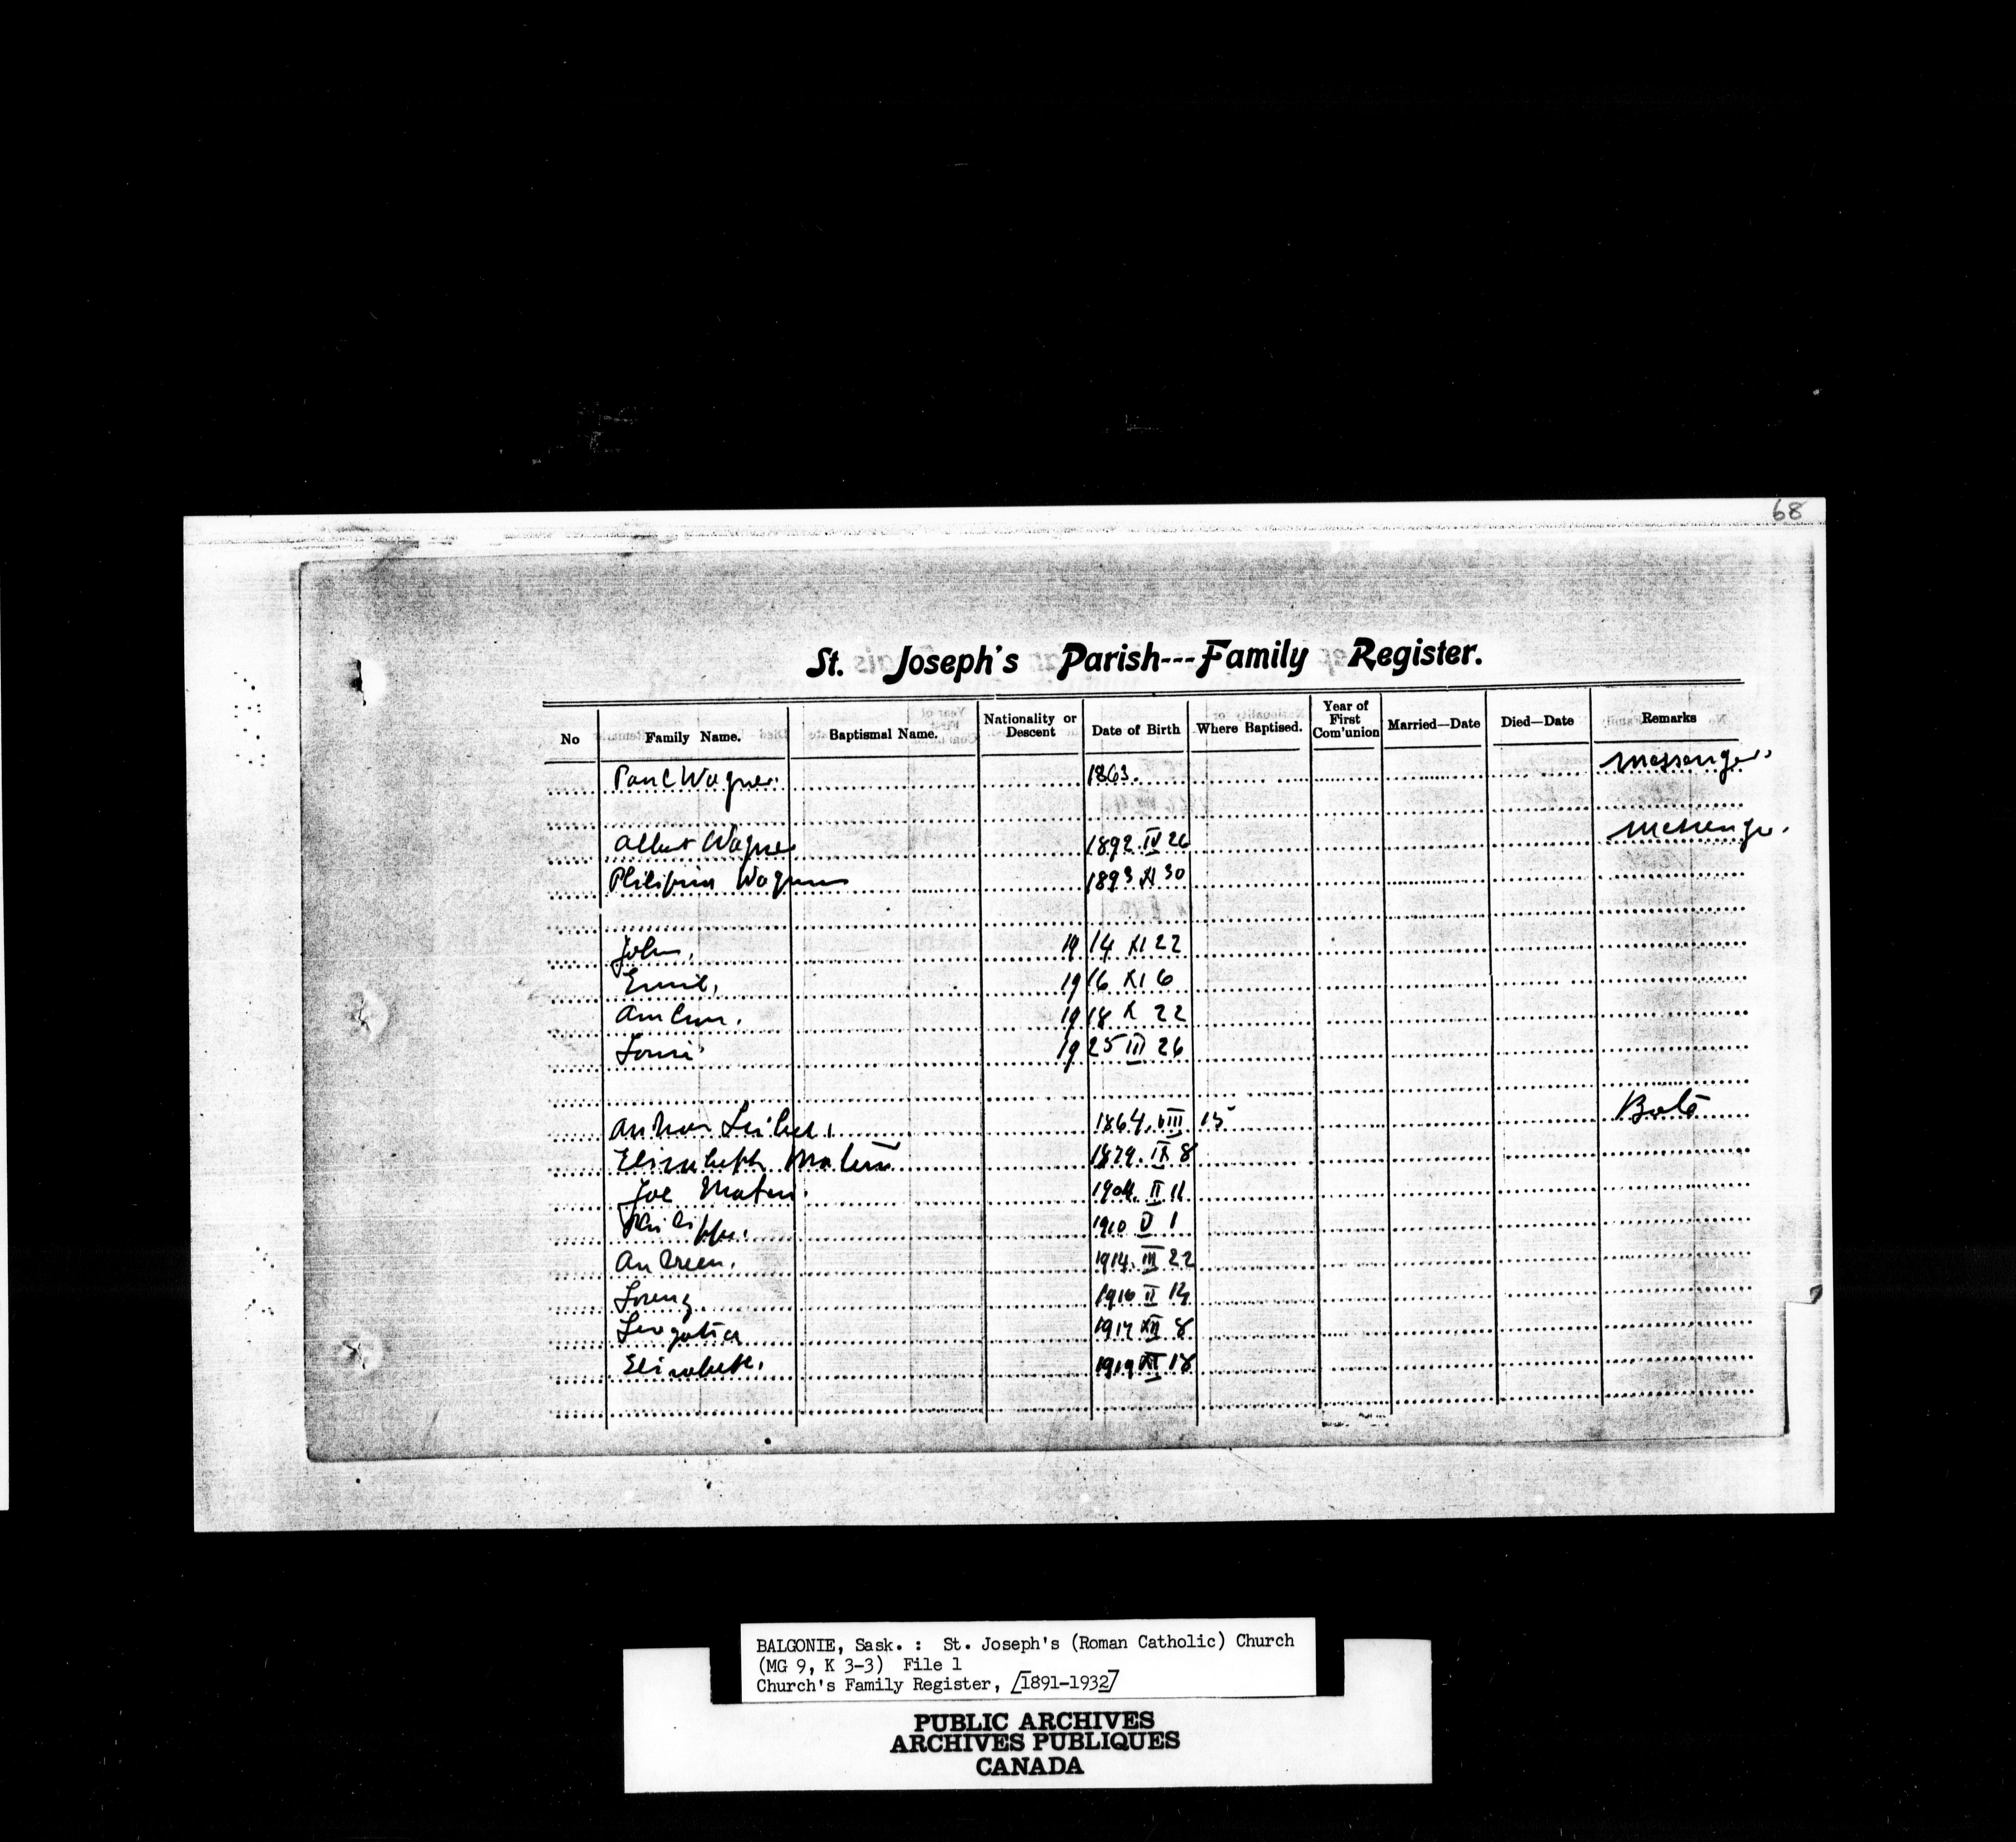 68
St. Joseph's Parish---Family Register.
No Family Name. Baptismal Name. Nationality or Descent Date of Birth Where Baptised. Year of First Com'union Married—Date Died—Date Remarks
Paul Wagner. 1863. Messenger.
Albert Wagner 1892 IV 26 Messenger.
Philipina Wagner 1893 XI 30
John. 1914 XI 22
Emil. 1916 XI 6
1918 X 22
Louis 1925 III 26
1864. VIII 15
Elisabeth 1879. IX 8
Joe 1904. II 11
Philipp. 1910 V 1
Andreas. 1914. III 22
Lorenz 1916 II 14
Leogatia 1917 XII 8
Elisabeth. 1919 XI 18
BALGONIE, Sask. : St. Joseph's (Roman Catholic) Church
(MG 9, K 3-3) File 1
Church's Family Register, [1891-1932]
PUBLIC ARCHIVES
ARCHIVES PUBLIQUES
CANADA